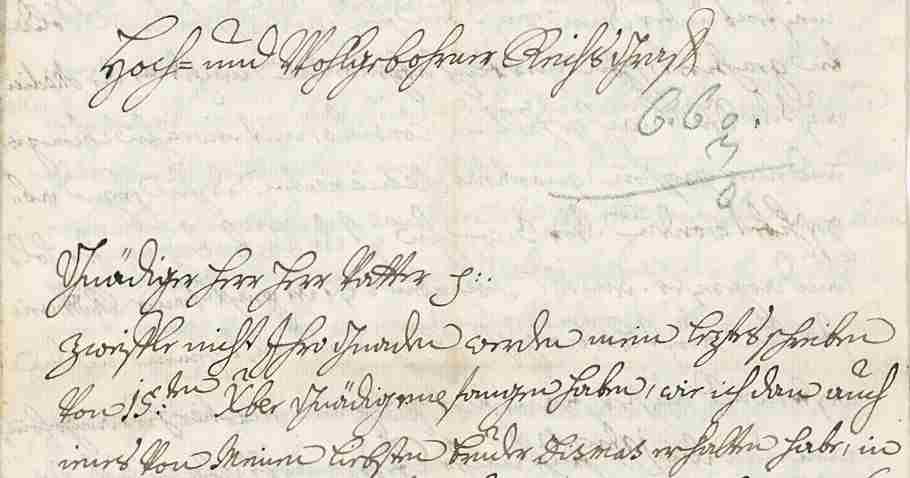 Hoch= und Wohlgebohrner Reichs Graff
6. 6 0.
3
0
Gnädiger Herr Herr Vatter p:.
zweiffle nicht Ihro Gnaden werden mein leztes schreiben
von 15:ten über Gnädig empfangen haben, wie ich dan auch
jenes von Meinen liebsten bruder Dismas erhalten habe, in